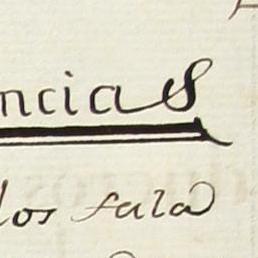 ncias
los fala